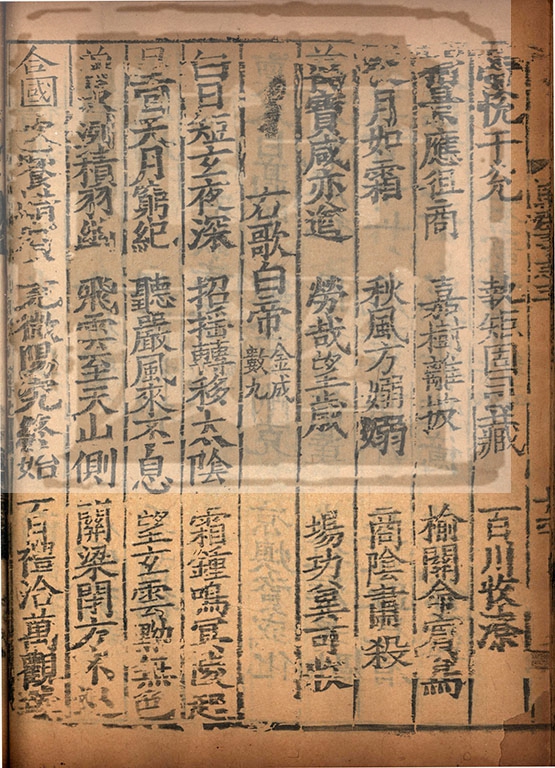 帝悅于兌 執矩固司藏 百川收潦
景應徂商 嘉樹離披 榆關命賓鳥
夜月如霜 秋風方嫋嫋 商陰肅殺
寶咸亦遒 勞哉望歲 場功冀可收
右歌白帝 金成數九
白日短玄夜深 招搖轉移太陰 霜鍾鳴冥陵起
星回天月窮紀 聽嚴風來不息 望玄雲黝無色
洌積羽幽 飛雲至天山側 關梁閉方不巡
合國吹饗蜡賓 充微陽究終始 百禮洽萬觀臻